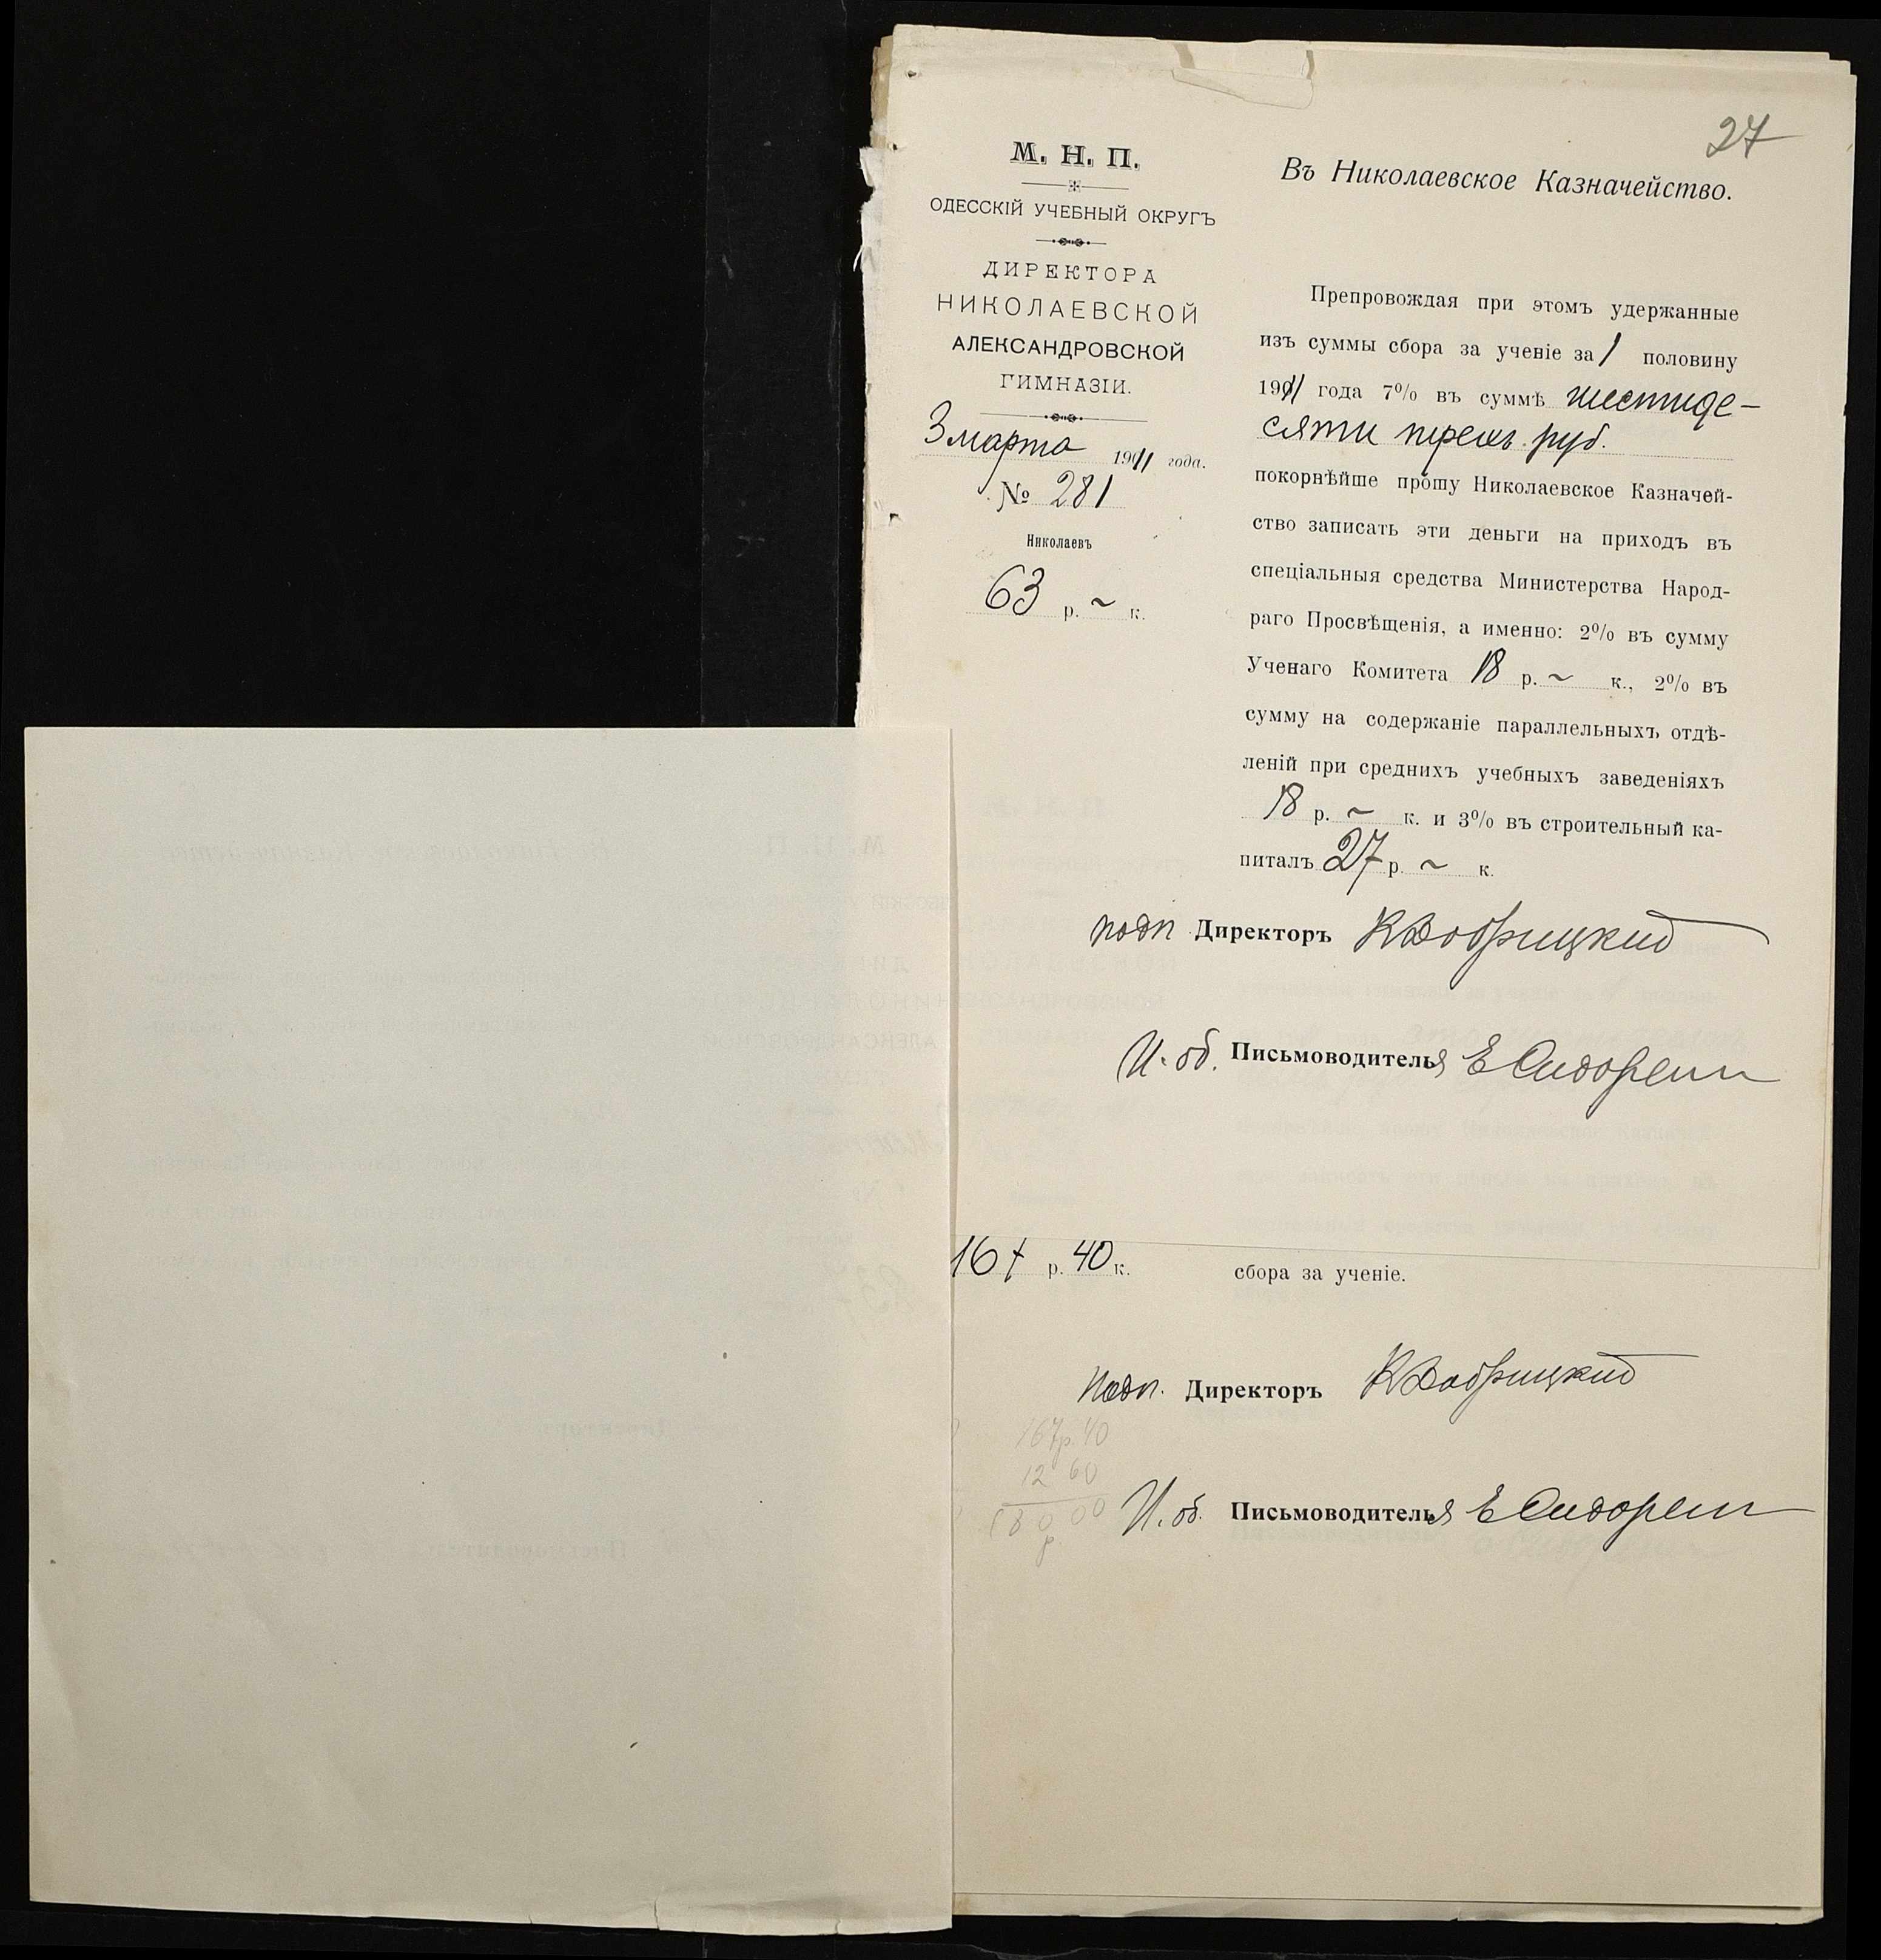 27
М. Н. П.
ОДЕССКІЙ УЧЕБНЫЙ ОКРУГЪ
ДИРЕКТОРА
НИКОЛАЕВСКОЙ
АЛЕКСАНДРОВСКОЙ
ГИМНАЗІИ.
3 марта 1911 года.
№ 281
Николаевъ
63 р. ~ к.
Въ Николаевское Казначейство.
Препровождая при этомъ удержанные
изъ суммы сбора за ученіе за 1 половину
1911 года 7% въ суммѣ шестиде-
сяти трехъ руб.
покорнѣйше прошу Николаевское Казначей-
ство записать эти деньги на приходъ въ
спеціальныя средства Министерства Народ-
раго Просвѣщенія, а именно: 2% въ сумму
Ученаго Комитета 18 р. ~ к., 2% въ
сумму на содержаніе параллельныхъ отдѣ-
леній при среднихъ учебныхъ заведеніяхъ
18 р. ~ к. и 3% въ строительный ка-
питалъ 27 р. ~ к.
подп Директоръ К Добрицкий
И. об. Письмоводителья Е Сидорен
167 р. 40 к.
сбора за ученіе.
Подп. Директоръ К Добрицкий
167р. 40
12 60
180 00
р
И. об. Письмоводителья Е Сидорен